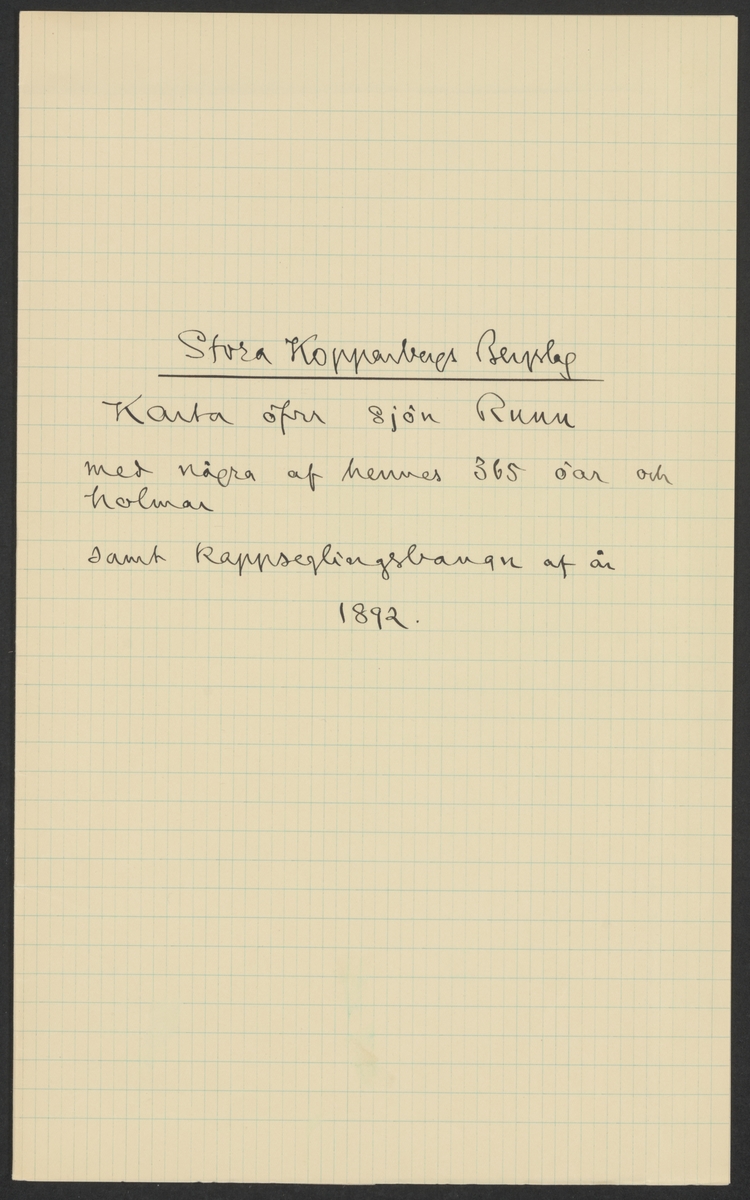 Stora Kopparbergs Bergslag
Karta öfver sjön Runn
med några af hennes 365 öar och
holmar
samt kappseglingsbanan af år
1892.